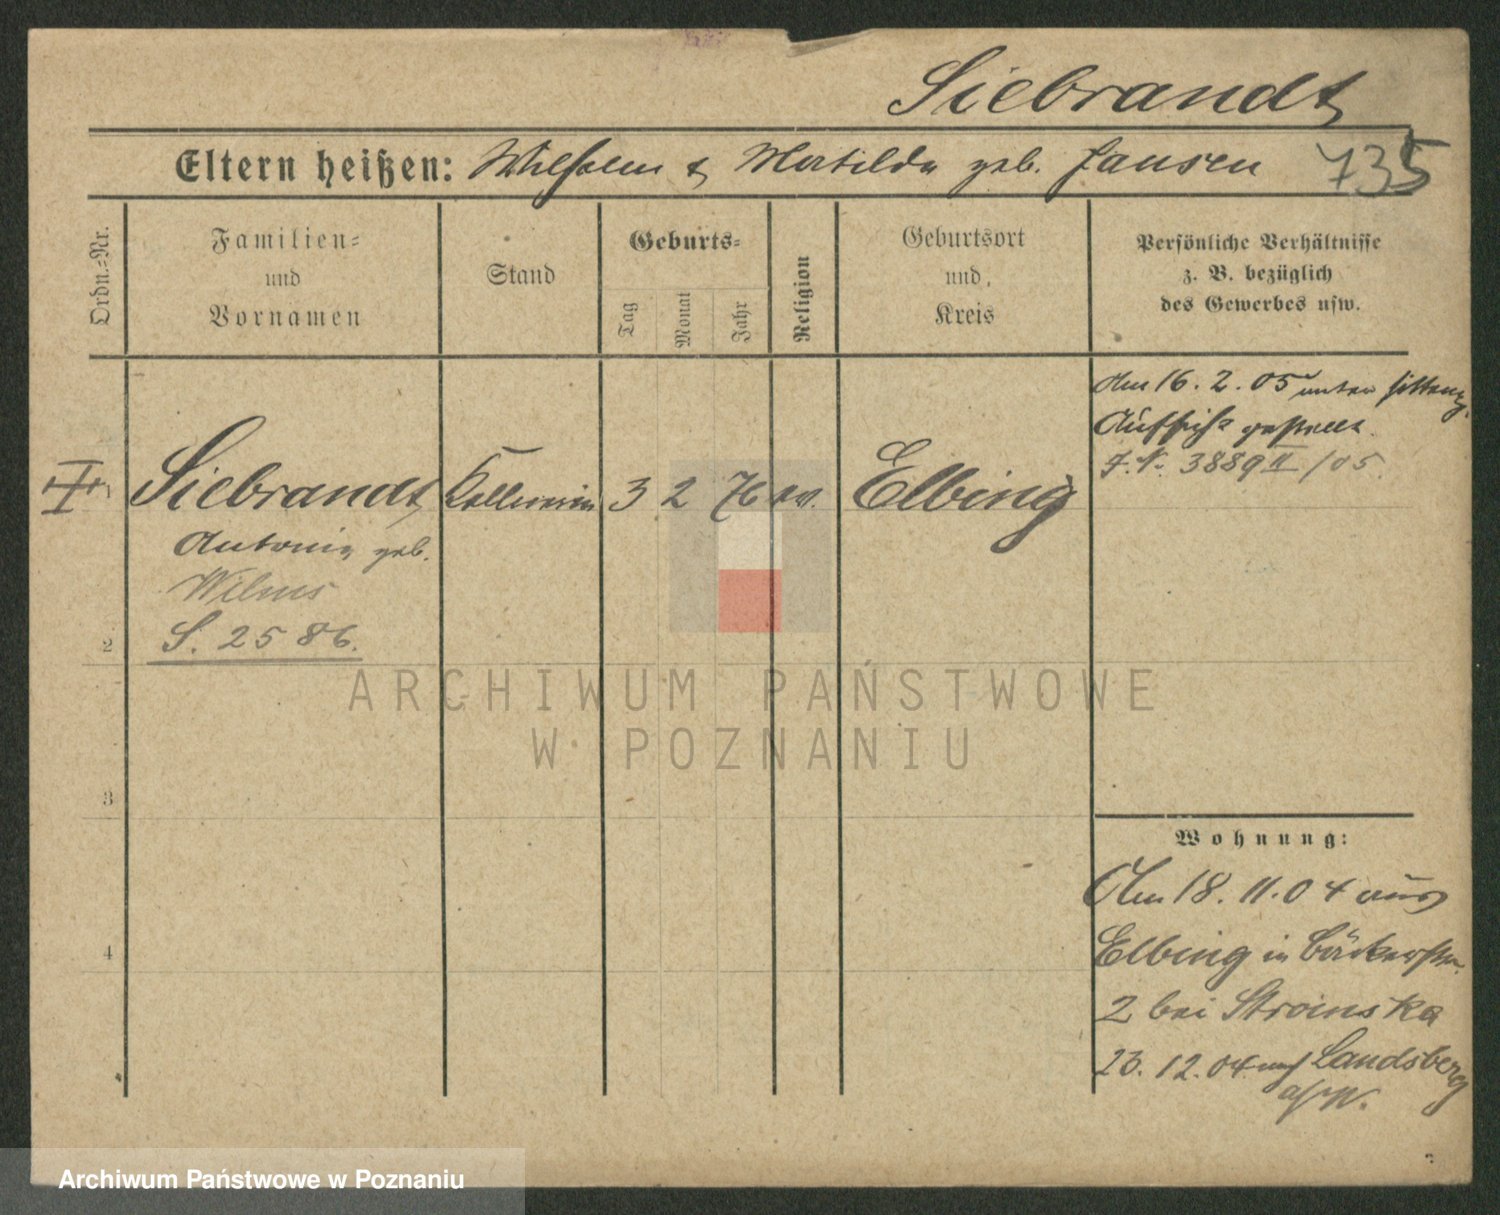 Siebrandt
Eltern heißen: Wilhelm & Matilda geb. Jansen 735
Ordn.=Nr.
Familien=
und
Vornamen
Stand
Geburts=
Tag
Monat
Jahr
Religion
Geburtsort
und
Kreis
Persönliche Verhältnisse
z. B. bezüglich
des Gewerbes usw.
Am 16. 2. 05 unter sittenp.
Aufsicht gestellt.
J. N. 3889 II/05.
Siebrandt, Kellnerin 3 2 76 ev. Elbing
Antonie geb.
Wilms
S. 2586.
2
ARCHIWUM PAŃSTWOWE
W POZNANIU
3
Wohnung:
Am 18. 11. 04 aus
4
Elbing in Bäckerstr.
2 bei Stroinska
23. 12. 04 nach Landsberg
a/W.
Archiwum Państwowe w Poznaniu